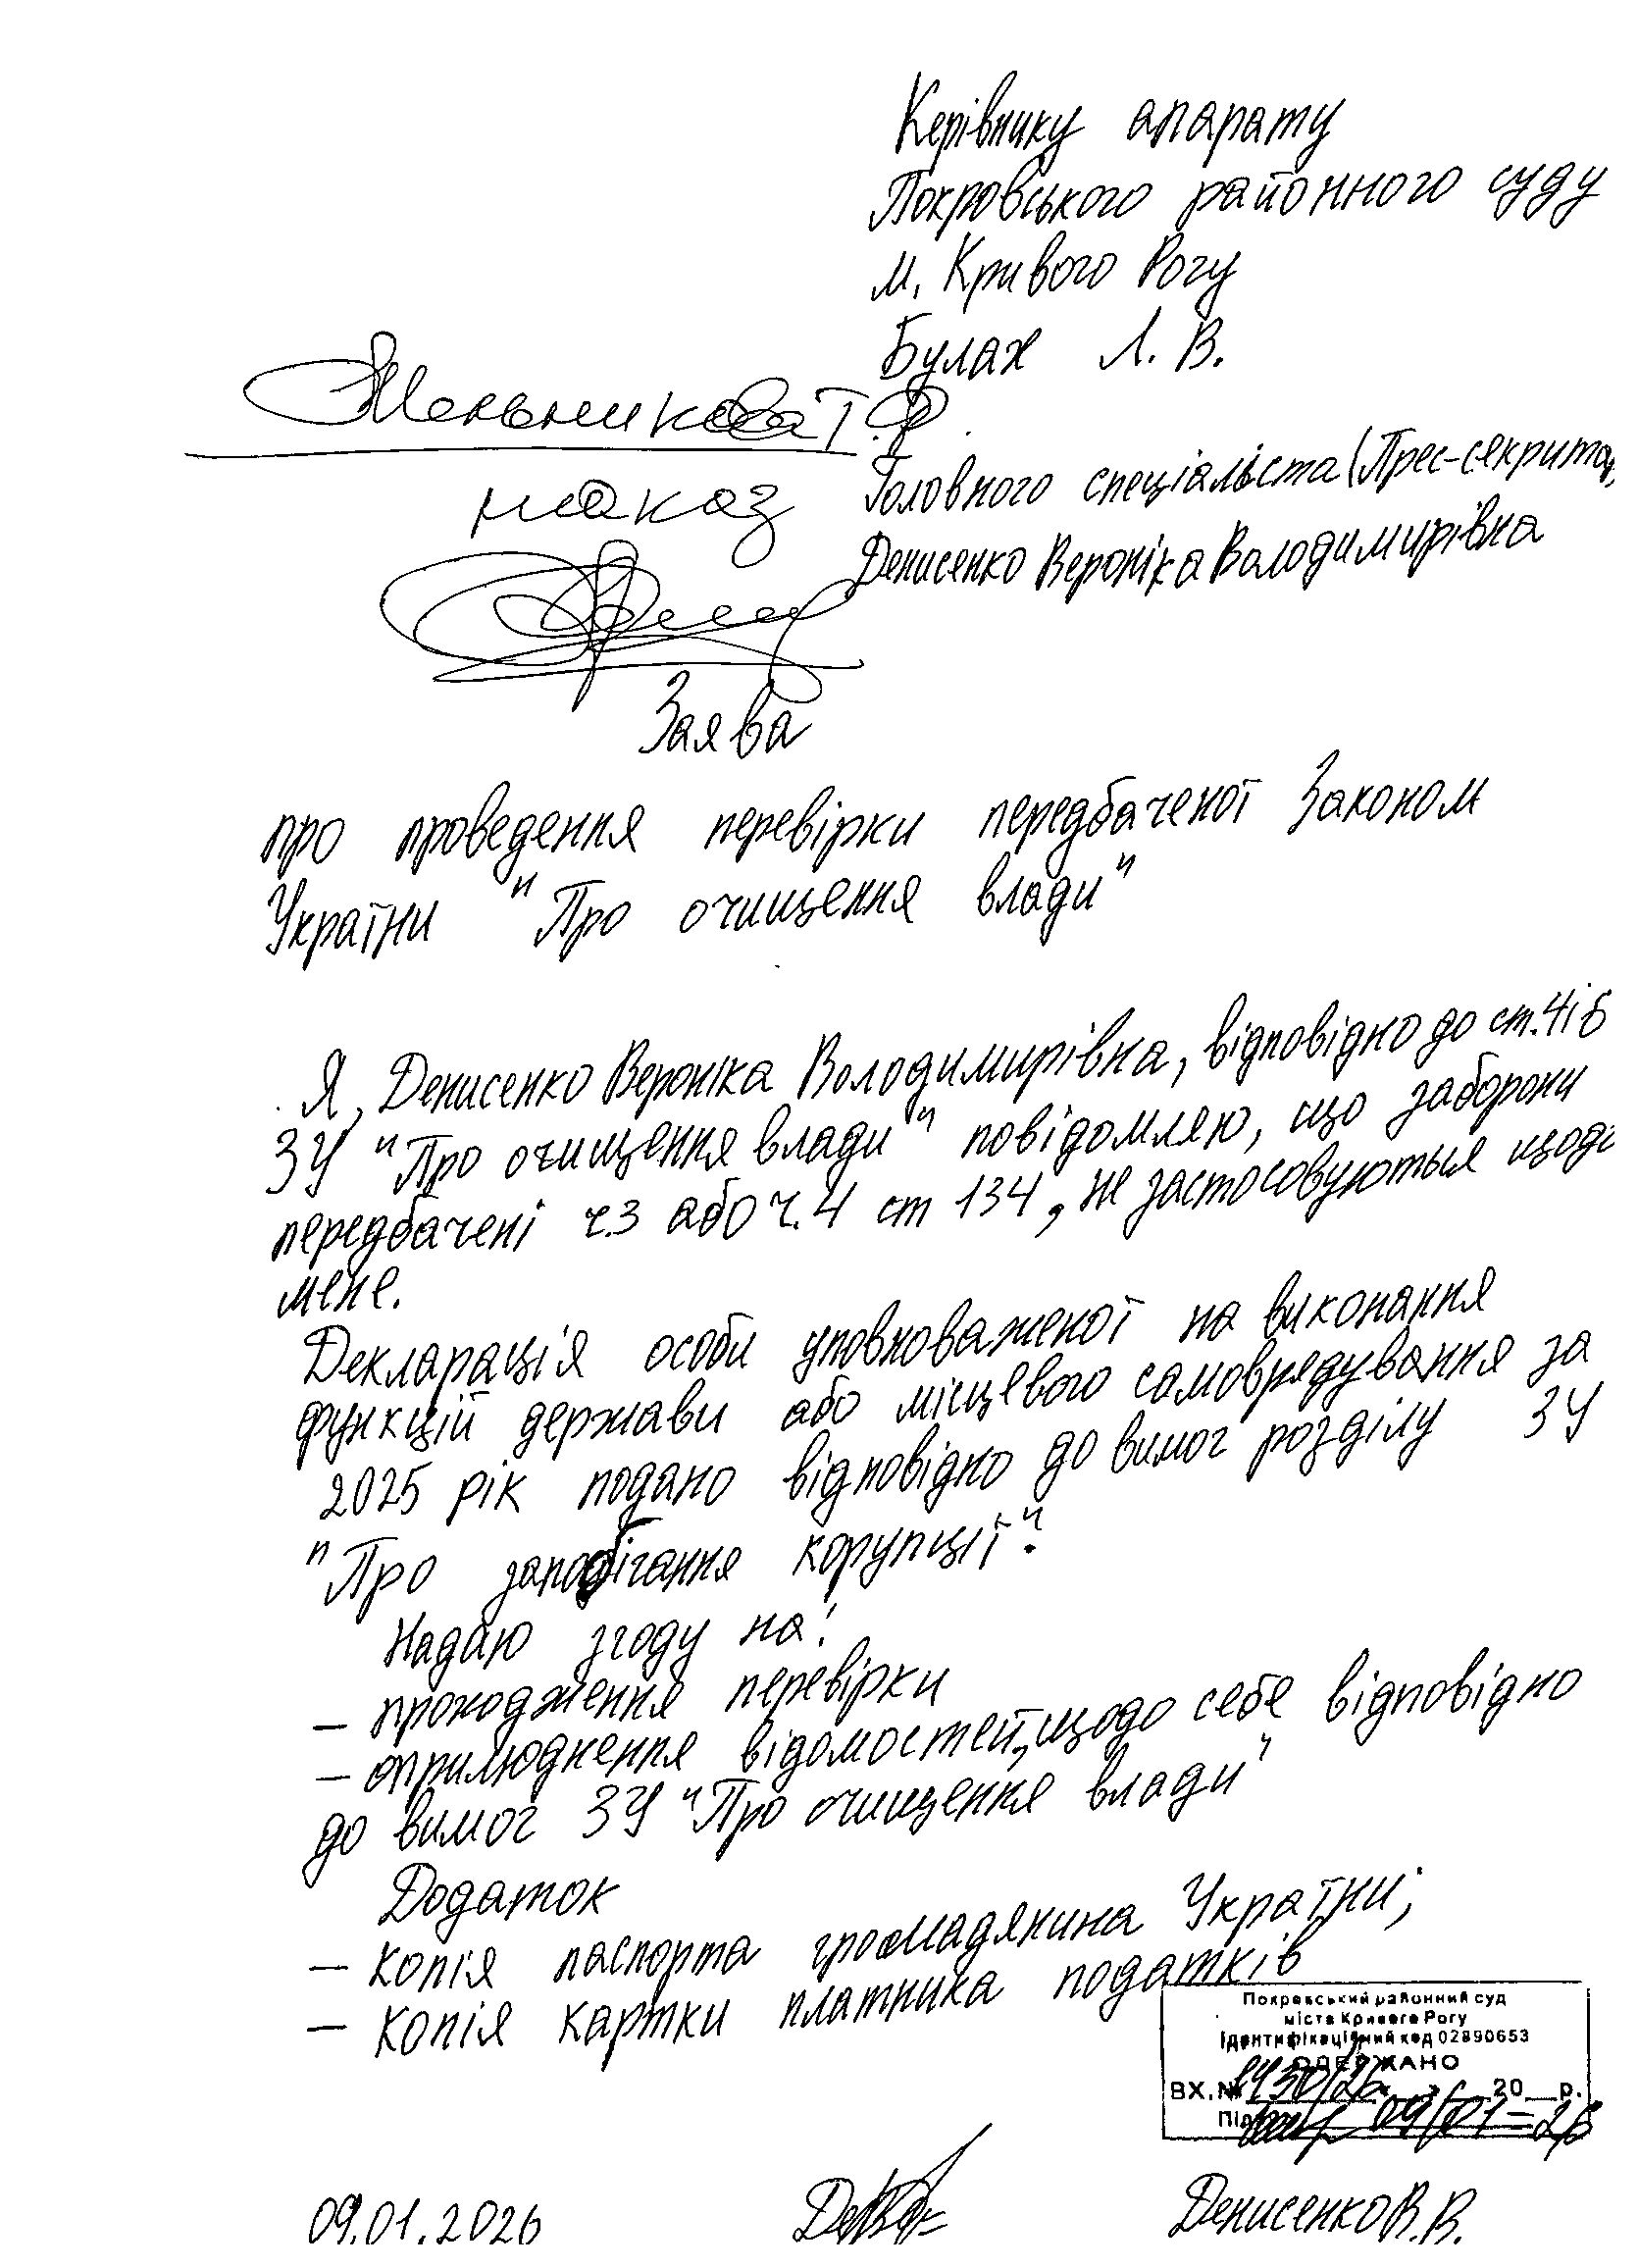 Керівнику апарату
Покровського районного суду
м. Кривого Рогу
Булах Л. В.
Мельникова Т.Ф.
наказ
Головного спеціаліста (Прес-секритар
Денисенко Вероніка Володимирівна
Заява
про проведення перевірки передбаченої Законом
України "Про очищення влади"
Я, Денисенко Вероніка Володимирівна, відповідно до ст. 4 і 6
ЗУ "Про очищення влади" повідомляю, що заборони
передбачені ч.3 або ч.4 ст 134, не застосовуються щодо
мене.
Декларація особи уповноваженої на виконання
функцій держави або місцевого самоврядування за
2025 рік подано відповідно до вимог розділу ЗУ
"Про запобігання корупції".
Надаю згоду на:
– проходження перевірки
– оприлюднення відомостей, щодо себе відповідно
до вимог ЗУ "Про очищення влади"
Додаток
– копія паспорта громадянина України;
– копія картки платника податків
Покровський районний суд
міста Кривого Рогу
Ідентифікаційний код 02890653
ОДЕРЖАНО
ВХ.№ 20__р.
09/01-26
09.01.2026 Денисенко В.В.